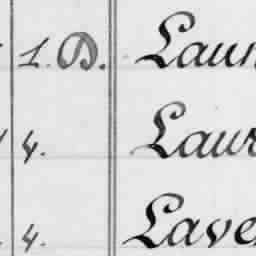 1. D. Laun
4. Laur
4. Lave